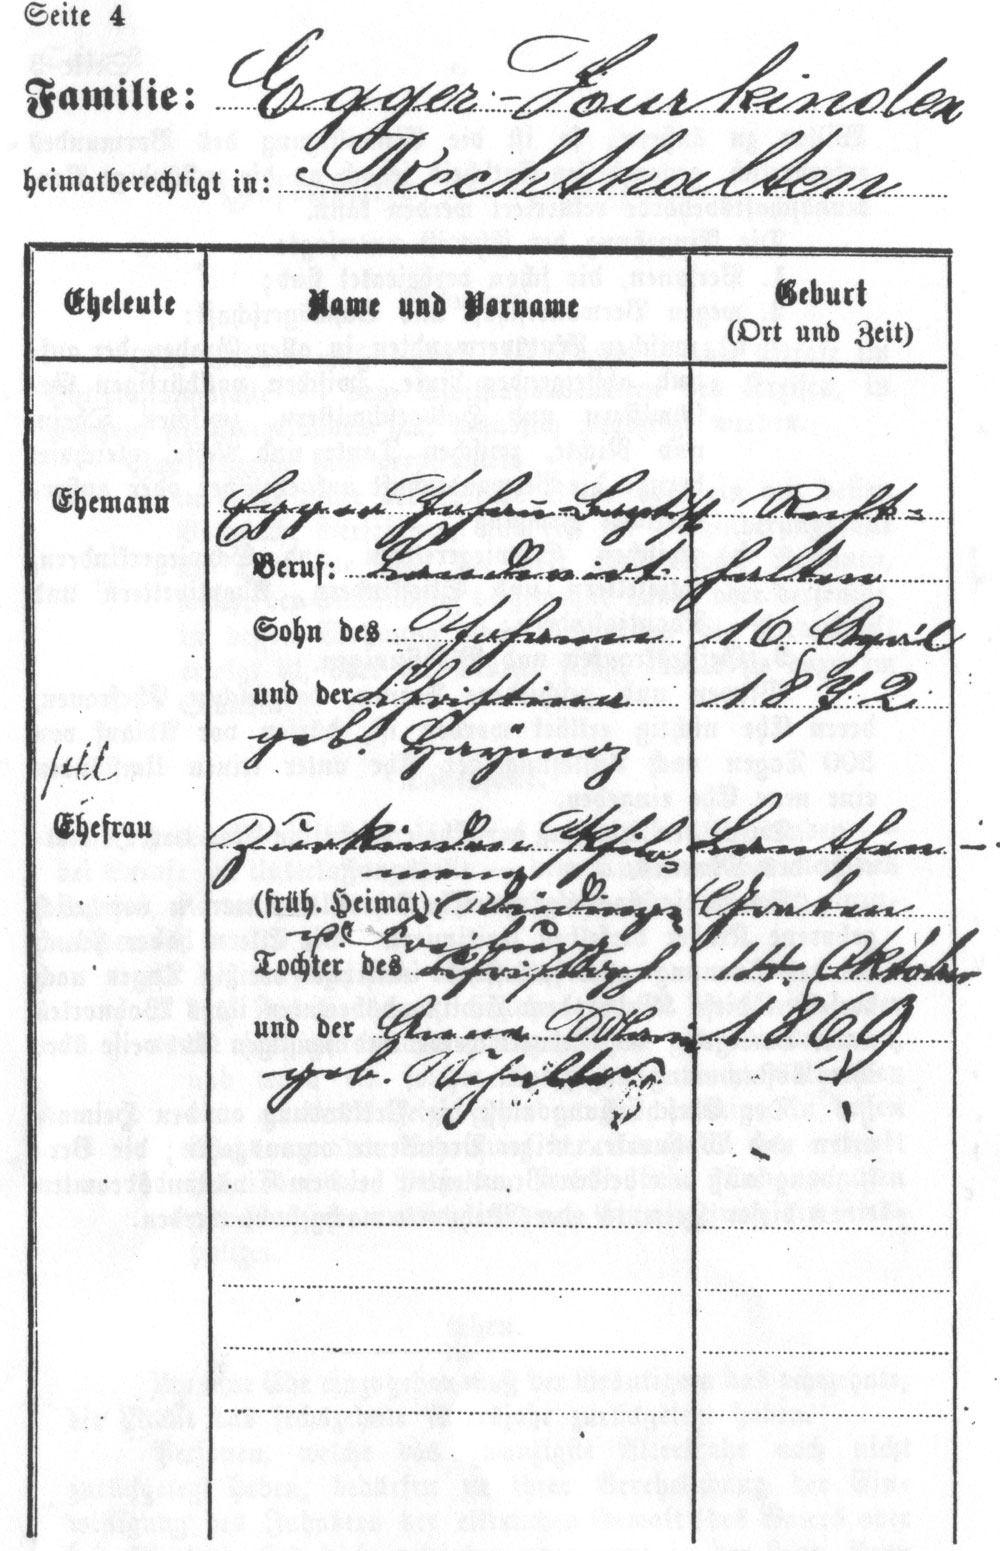 Seite 4
Familie: Egger-Zurkinden
heimatberechtigt in: Rechthalten
Eheleute Name und Vorname Geburt
(Ort und Zeit)
Ehemann Egger Johann Recht-
Beruf: Landwirt halten
Sohn des Johann 16 April
und der Christina 1872.
geb.
Ehefrau Zurkinden
(früh. Heimat) Düdingen Graben
Tochter des 14. Oktober
und der Anna 1869
geb.